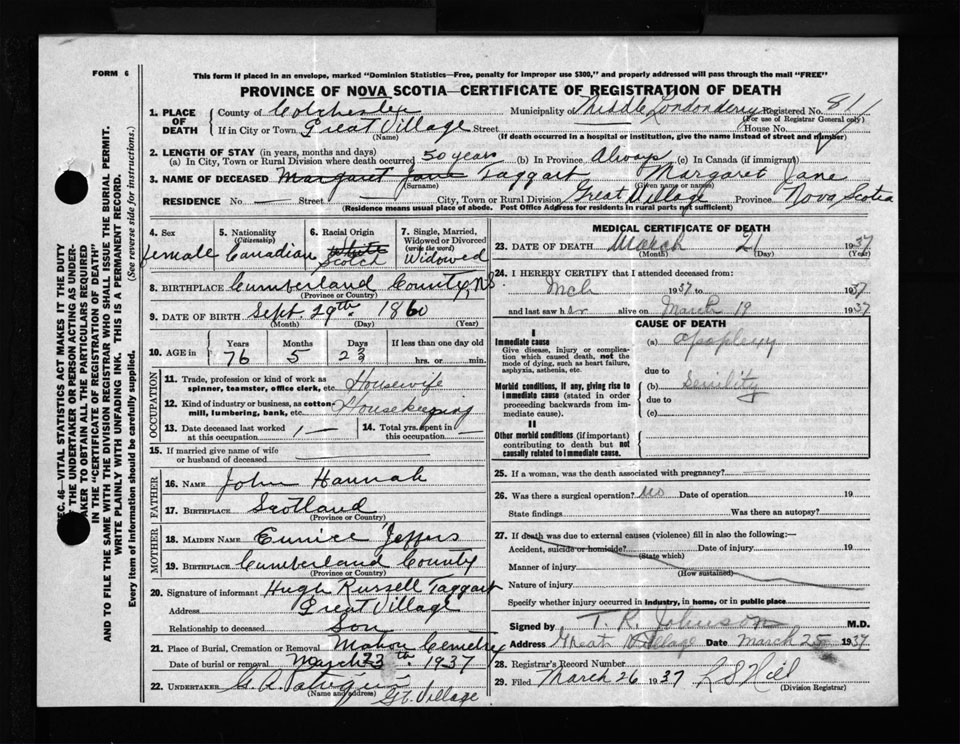 FORM 6
This form if placed in an envelope, marked "Dominion Statistics—Free, penalty for improper use $300," and properly addressed will pass through the mail "FREE"
PROVINCE OF NOVA SCOTIA—CERTIFICATE OF REGISTRATION OF DEATH
1. PLACE OF DEATH County of Colchester Municipality of Middle Londonderry Registered No. 811
(For use of Registrar General only)
If in City or Town Great Village Street House No.
(Name) (If death occurred in a hospital or institution, give the name instead of street and number)
2. LENGTH OF STAY (in years, months and days)
(a) In City, Town or Rural Division where death occurred 50 years (b) In Province Always (c) In Canada (if immigrant)
3. NAME OF DECEASED Margaret Jane Taggart Margaret Jane
(Surname) (Given name or names)
RESIDENCE No. — Street City, Town or Rural Division Great Village Province Nova Scotia
(Residence means usual place of abode. Post Office Address for residents in rural parts not sufficient)
4. Sex female
5. Nationality (Citizenship) Canadian
6. Racial Origin White Scotch
7. Single, Married, Widowed or Divorced (write the word) Widowed
8. BIRTHPLACE Cumberland County NS
(Province or Country)
9. DATE OF BIRTH Sept. 29th 1860
(Month) (Day) (Year)
10. AGE in Years 76 Months 5 Days If less than one day old hrs. or min.
OCCUPATION
11. Trade, profession or kind of work as spinner, teamster, office clerk, etc. Housewife
12. Kind of industry or business, as cotton-mill, lumbering, bank, etc. Housekeeping
13. Date deceased last worked at this occupation
14. Total yrs. spent in this occupation
15. If married give name of wife or husband of deceased
FATHER
16. NAME John Hannah
17. BIRTHPLACE Scotland
(Province or Country)
MOTHER
18. MAIDEN NAME Eunice Jeffers
19. BIRTHPLACE Cumberland County
(Province or Country)
20. Signature of informant Hugh Russell Taggart
Address Great Village
Relationship to deceased Son
21. Place of Burial, Cremation or Removal Mahon Cemetry
Date of burial or removal March 23th 1937
22. UNDERTAKER
(Name and address) Gt. Village
MEDICAL CERTIFICATE OF DEATH
23. DATE OF DEATH March 21 1937
(Month) (Day) (Year)
24. I HEREBY CERTIFY that I attended deceased from:
Mch 1937 to 1937
and last saw her alive on March 19 1937
CAUSE OF DEATH
I
Immediate cause
Give disease, injury or complication which caused death, not the mode of dying, such as heart failure, asphyxia, asthenia, etc.
(a) apoplexy
due to
Morbid conditions, if any, giving rise to immediate cause (stated in order proceeding backwards from immediate cause).
(b) Senility
due to
(c)
II
Other morbid conditions (if important) contributing to death but not causally related to immediate cause.
25. If a woman, was the death associated with pregnancy?
26. Was there a surgical operation? No Date of operation 19
State findings Was there an autopsy?
27. If death was due to external causes (violence) fill in also the following:—
Accident, suicide or homicide? Date of injury 19
(State which)
Manner of injury
(How sustained)
Nature of injury
Specify whether injury occurred in industry, in home, or in public place
Signed by T. R. Johnson M.D.
Address Great Village Date March 25 1937
28. Registrar's Record Number
29. Filed March 26 1937 L S Hill
(Division Registrar)
SEC. 46—VITAL STATISTICS ACT MAKES IT THE DUTY
OF THE UNDERTAKER OR PERSON ACTING AS UNDER-
TAKER TO OBTAIN ALL THE PARTICULARS REQUIRED
IN THE "CERTIFICATE OF REGISTRATION OF DEATH"
AND TO FILE THE SAME WITH THE DIVISION REGISTRAR WHO SHALL ISSUE THE BURIAL PERMIT.
WRITE PLAINLY WITH UNFADING INK. THIS IS A PERMANENT RECORD.
Every item of information should be carefully supplied. (See reverse side for instructions.)